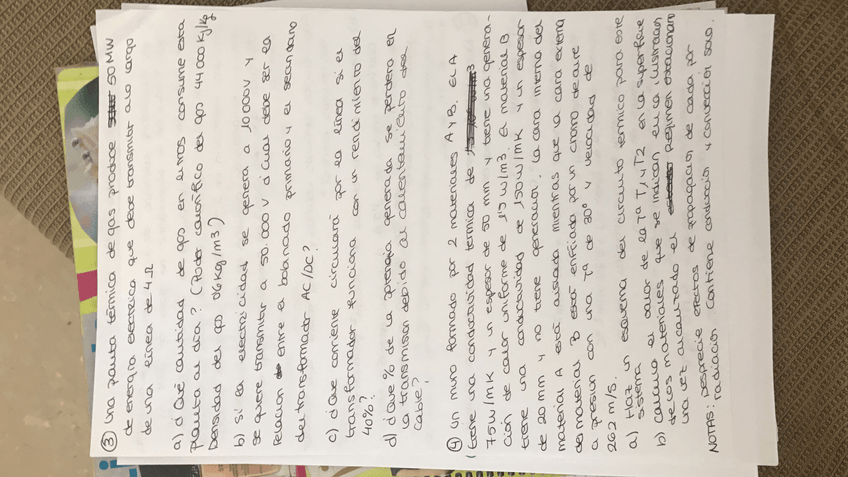 ③ Una planta térmica de gas produce 50 MW
de energía eléctrica que debe transmitir a lo largo
de una línea de 4 Ω
a) ¿Qué cantidad de gas en litros consume esta
planta al día? (Poder calorífico del gas 44000 kJ/kg
Densidad del gas 0'6 kg/m3)
b) Si la electricidad se genera a 10000 V y
se quiere transmitir a 50.000 V ¿Cuál debe ser la
relación entre el bobinado primario y el secundario
del transformador AC/DC?
c) ¿Qué corriente circulará por la línea si el
transformador funciona con un rendimiento del
40%?
d) ¿Qué % de la energía generada se perderá en
la transmisión debido al calentamiento del
cable?
④ Un muro formado por 2 materiales A y B. El A
(tiene una conductividad térmica de
75 W/mK y un espesor de 50 mm y tiene una genera-
ción de calor uniforme de 1'5 W/m3. El material B
tiene una conductividad de 150 W/mK y un espesor
de 20 mm y no tiene generación. La cara interna del
material A está aislada mientras que la cara externa
del material B está enfriada por un chorro de aire
a presión con una Tª de 30º y velocidad de
262 m/s.
a) Haz un esquema del circuito térmico para este
sistema
b) Calcula el valor de la Tª T1 y T2 en la superficie
de los materiales que se indican en la ilustración
una vez alcanzado el régimen estacionario
NOTAS: Desprecie efectos de propagación de calor por
radiación. Contiene conducción y convección solo.